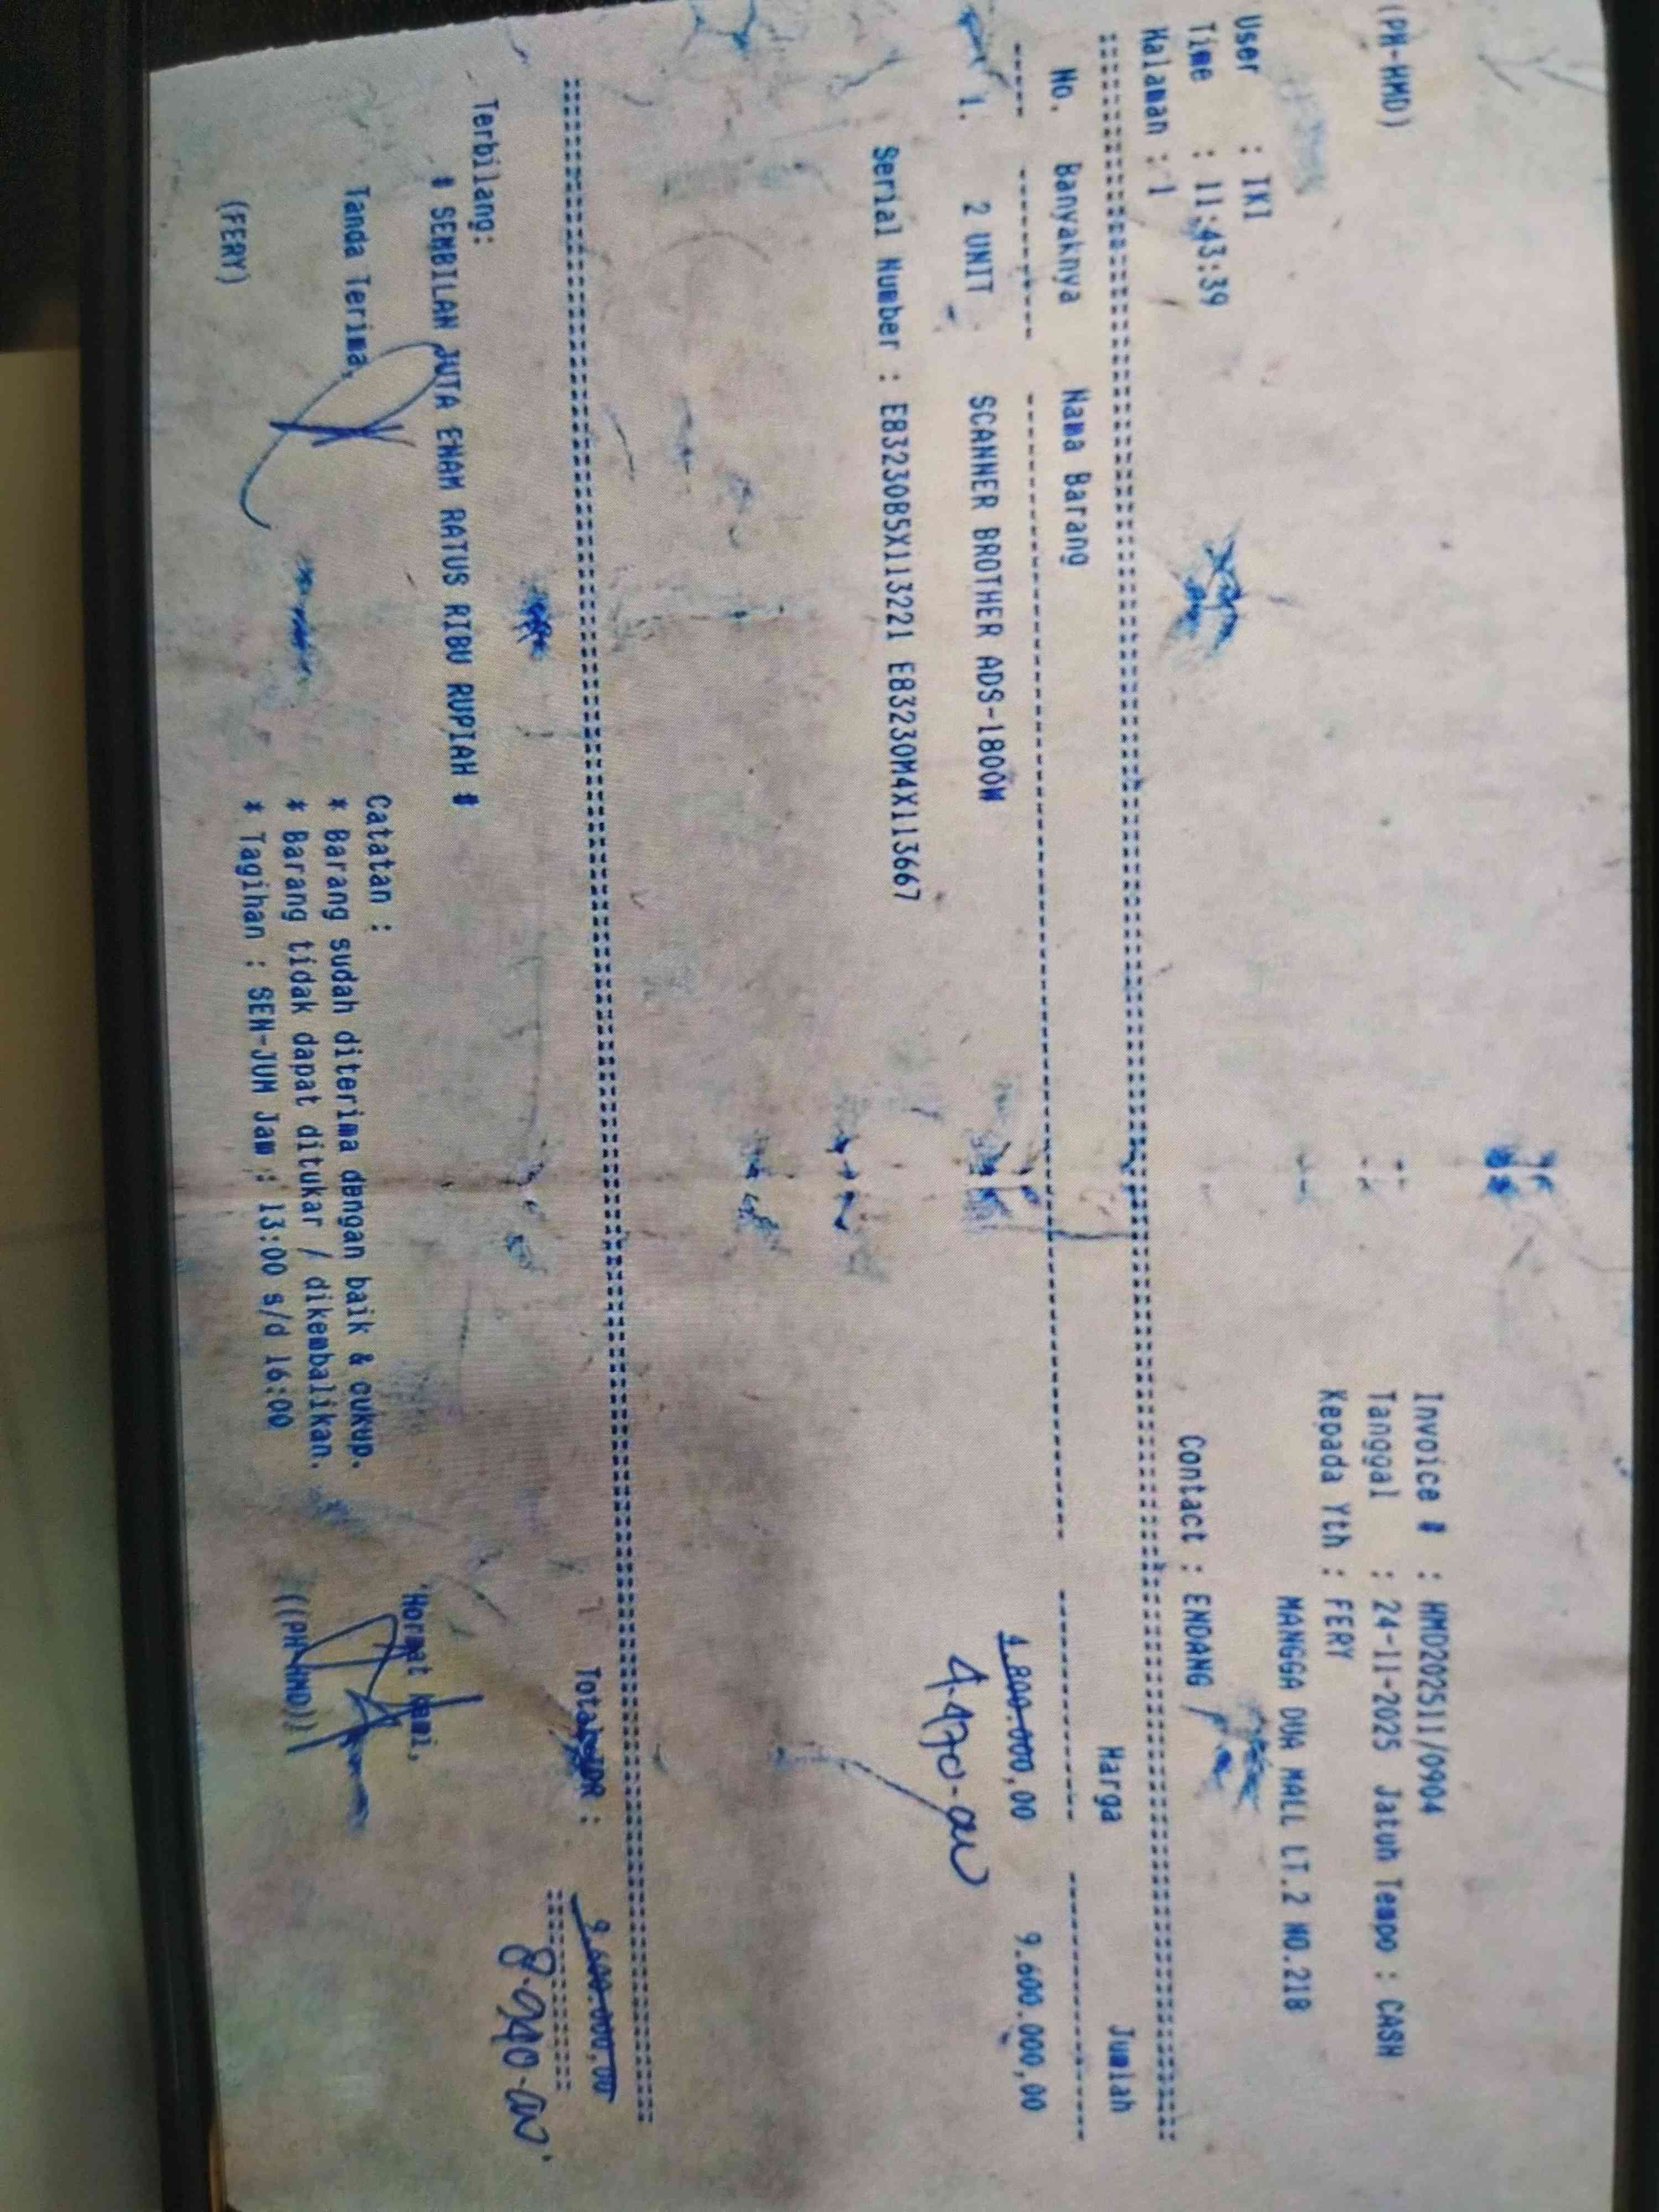 (PH-HMD))
Invoice # : HMD202511/0904
Tanggal : 24-11-2025 Jatuh Tempo : CASH
Kepada Yth : FERY
MANGGA DUA MALL LT.2 NO.21B
User : IKI
Time : 11:43:39
Halaman : 1
Contact : ENDANG
No. Banyaknya Nama Barang Harga Jumlah
1. 2 UNIT SCANNER BROTHER ADS-1800W 4.800.000,00 9.600.000,00
4.470.000
Serial Number : E83230B5X113221 E83230M4X113667
Total IDR : 9.600.000,00
8.940.000
Terbilang:
# SEMBILAN JUTA ENAM RATUS RIBU RUPIAH #
Tanda Terima,
Hormat Kami,
Catatan :
* Barang sudah diterima dengan baik & cukup.
* Barang tidak dapat ditukar / dikembalikan.
* Tagihan : SEN-JUM Jam : 13:00 s/d 16:00
(FERY)
((PH-HMD))